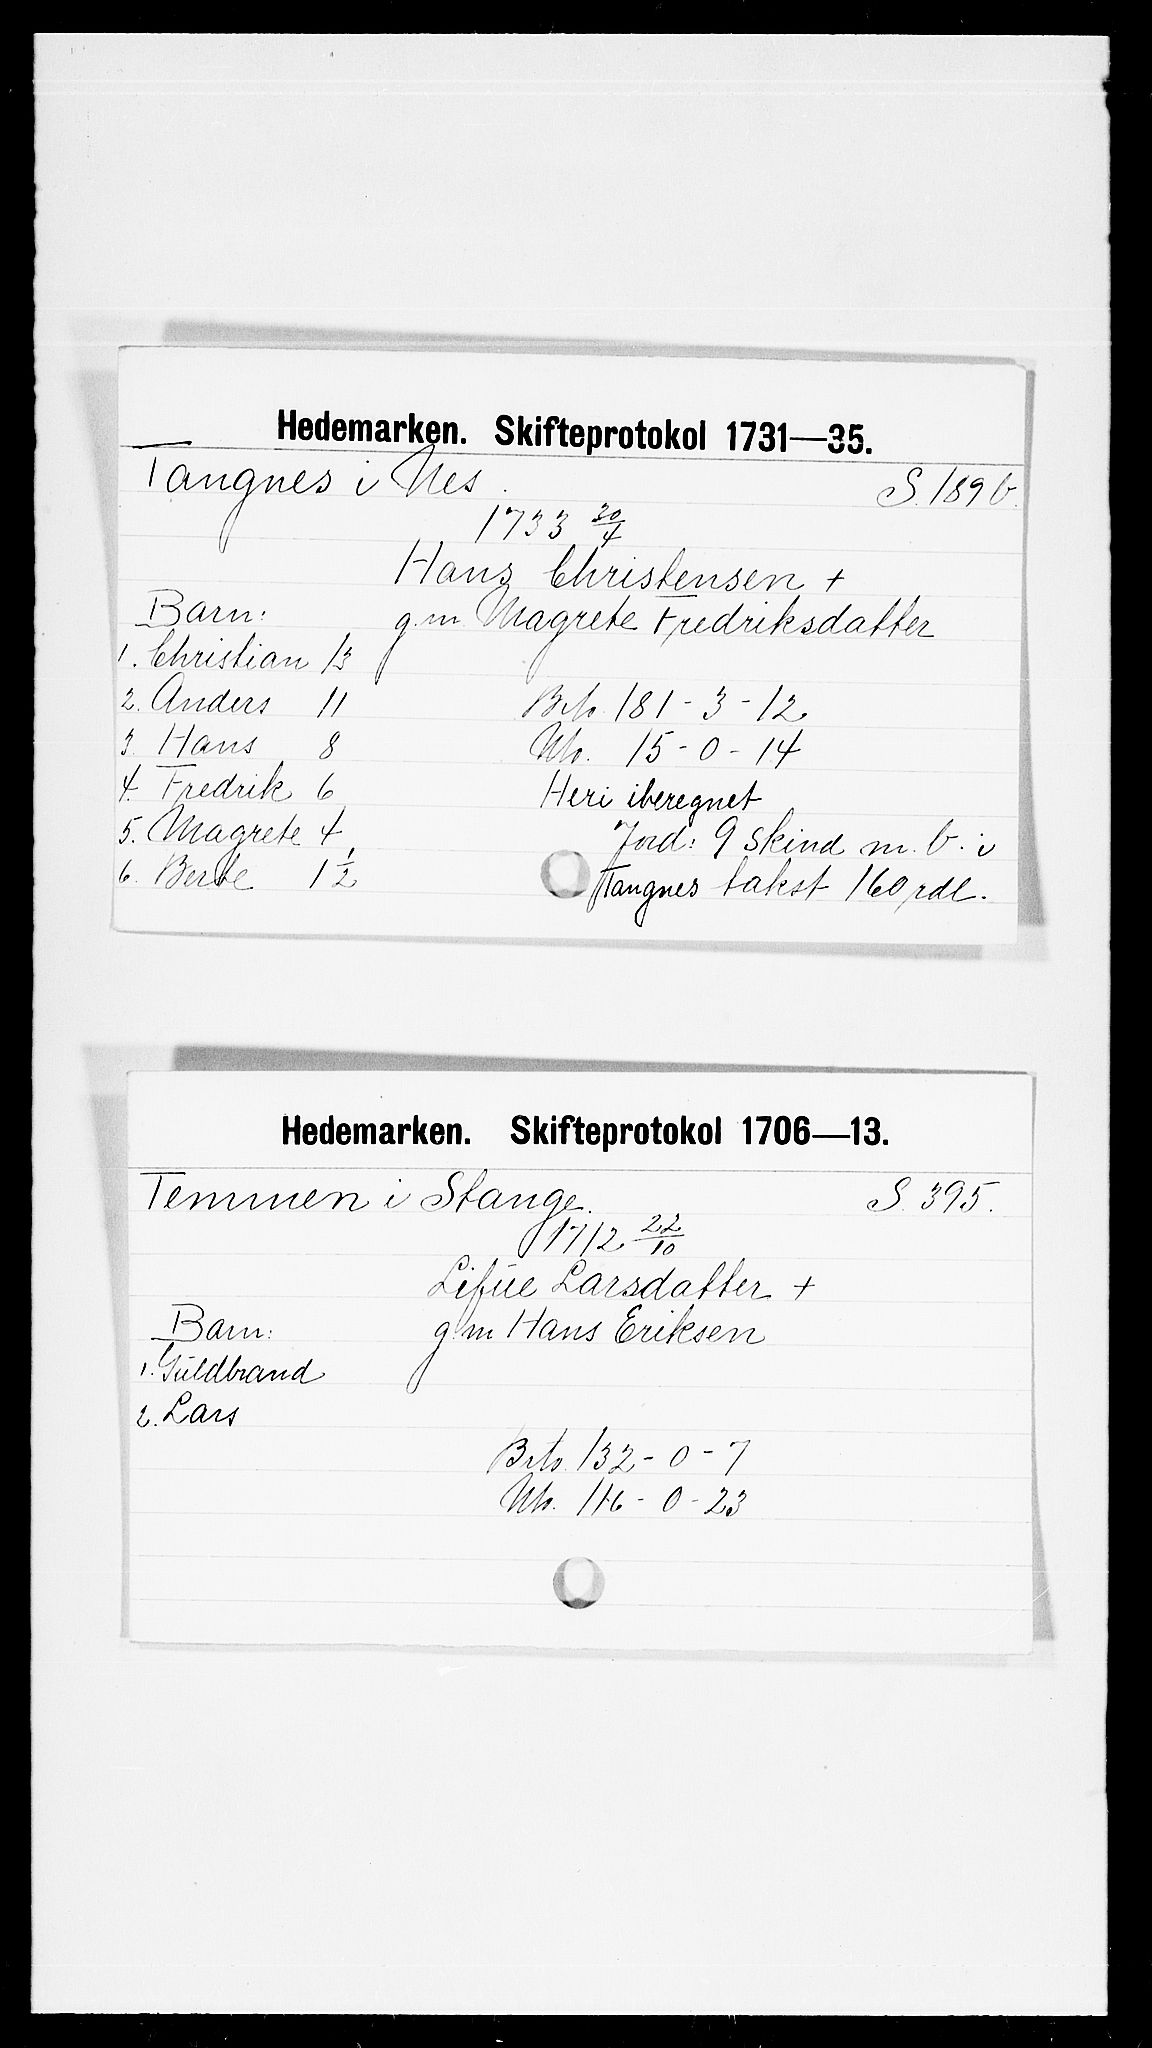 Hedemarken. Skifteprotokol 1731—35.
Tangnes i Nes. S. 189 b.
1733 30/4
Hans Christensen +
Barn: g.m. Magrete Fredriksdatter
1. Christian 13
2. Anders 11 Brto. 181 - 3 - 12
3. Hans 8 Nto. 15 - 0 - 14
4. Fredrik 6 Heri iberegnet
5. Magrete 4 Jord: 9 skind m. b. i
6. Berte 1 1/2 Tangnes takst 160 rdl.
Hedemarken. Skifteprotokol 1706—13.
Temmen i Stange. S. 395.
1712 22/10
Lisue Larsdatter +
Barn: g m Hans Eriksen
1. Guldbrand
2. Lars
Brto. 132 - 0 - 7
Nto. 116 - 0 - 23